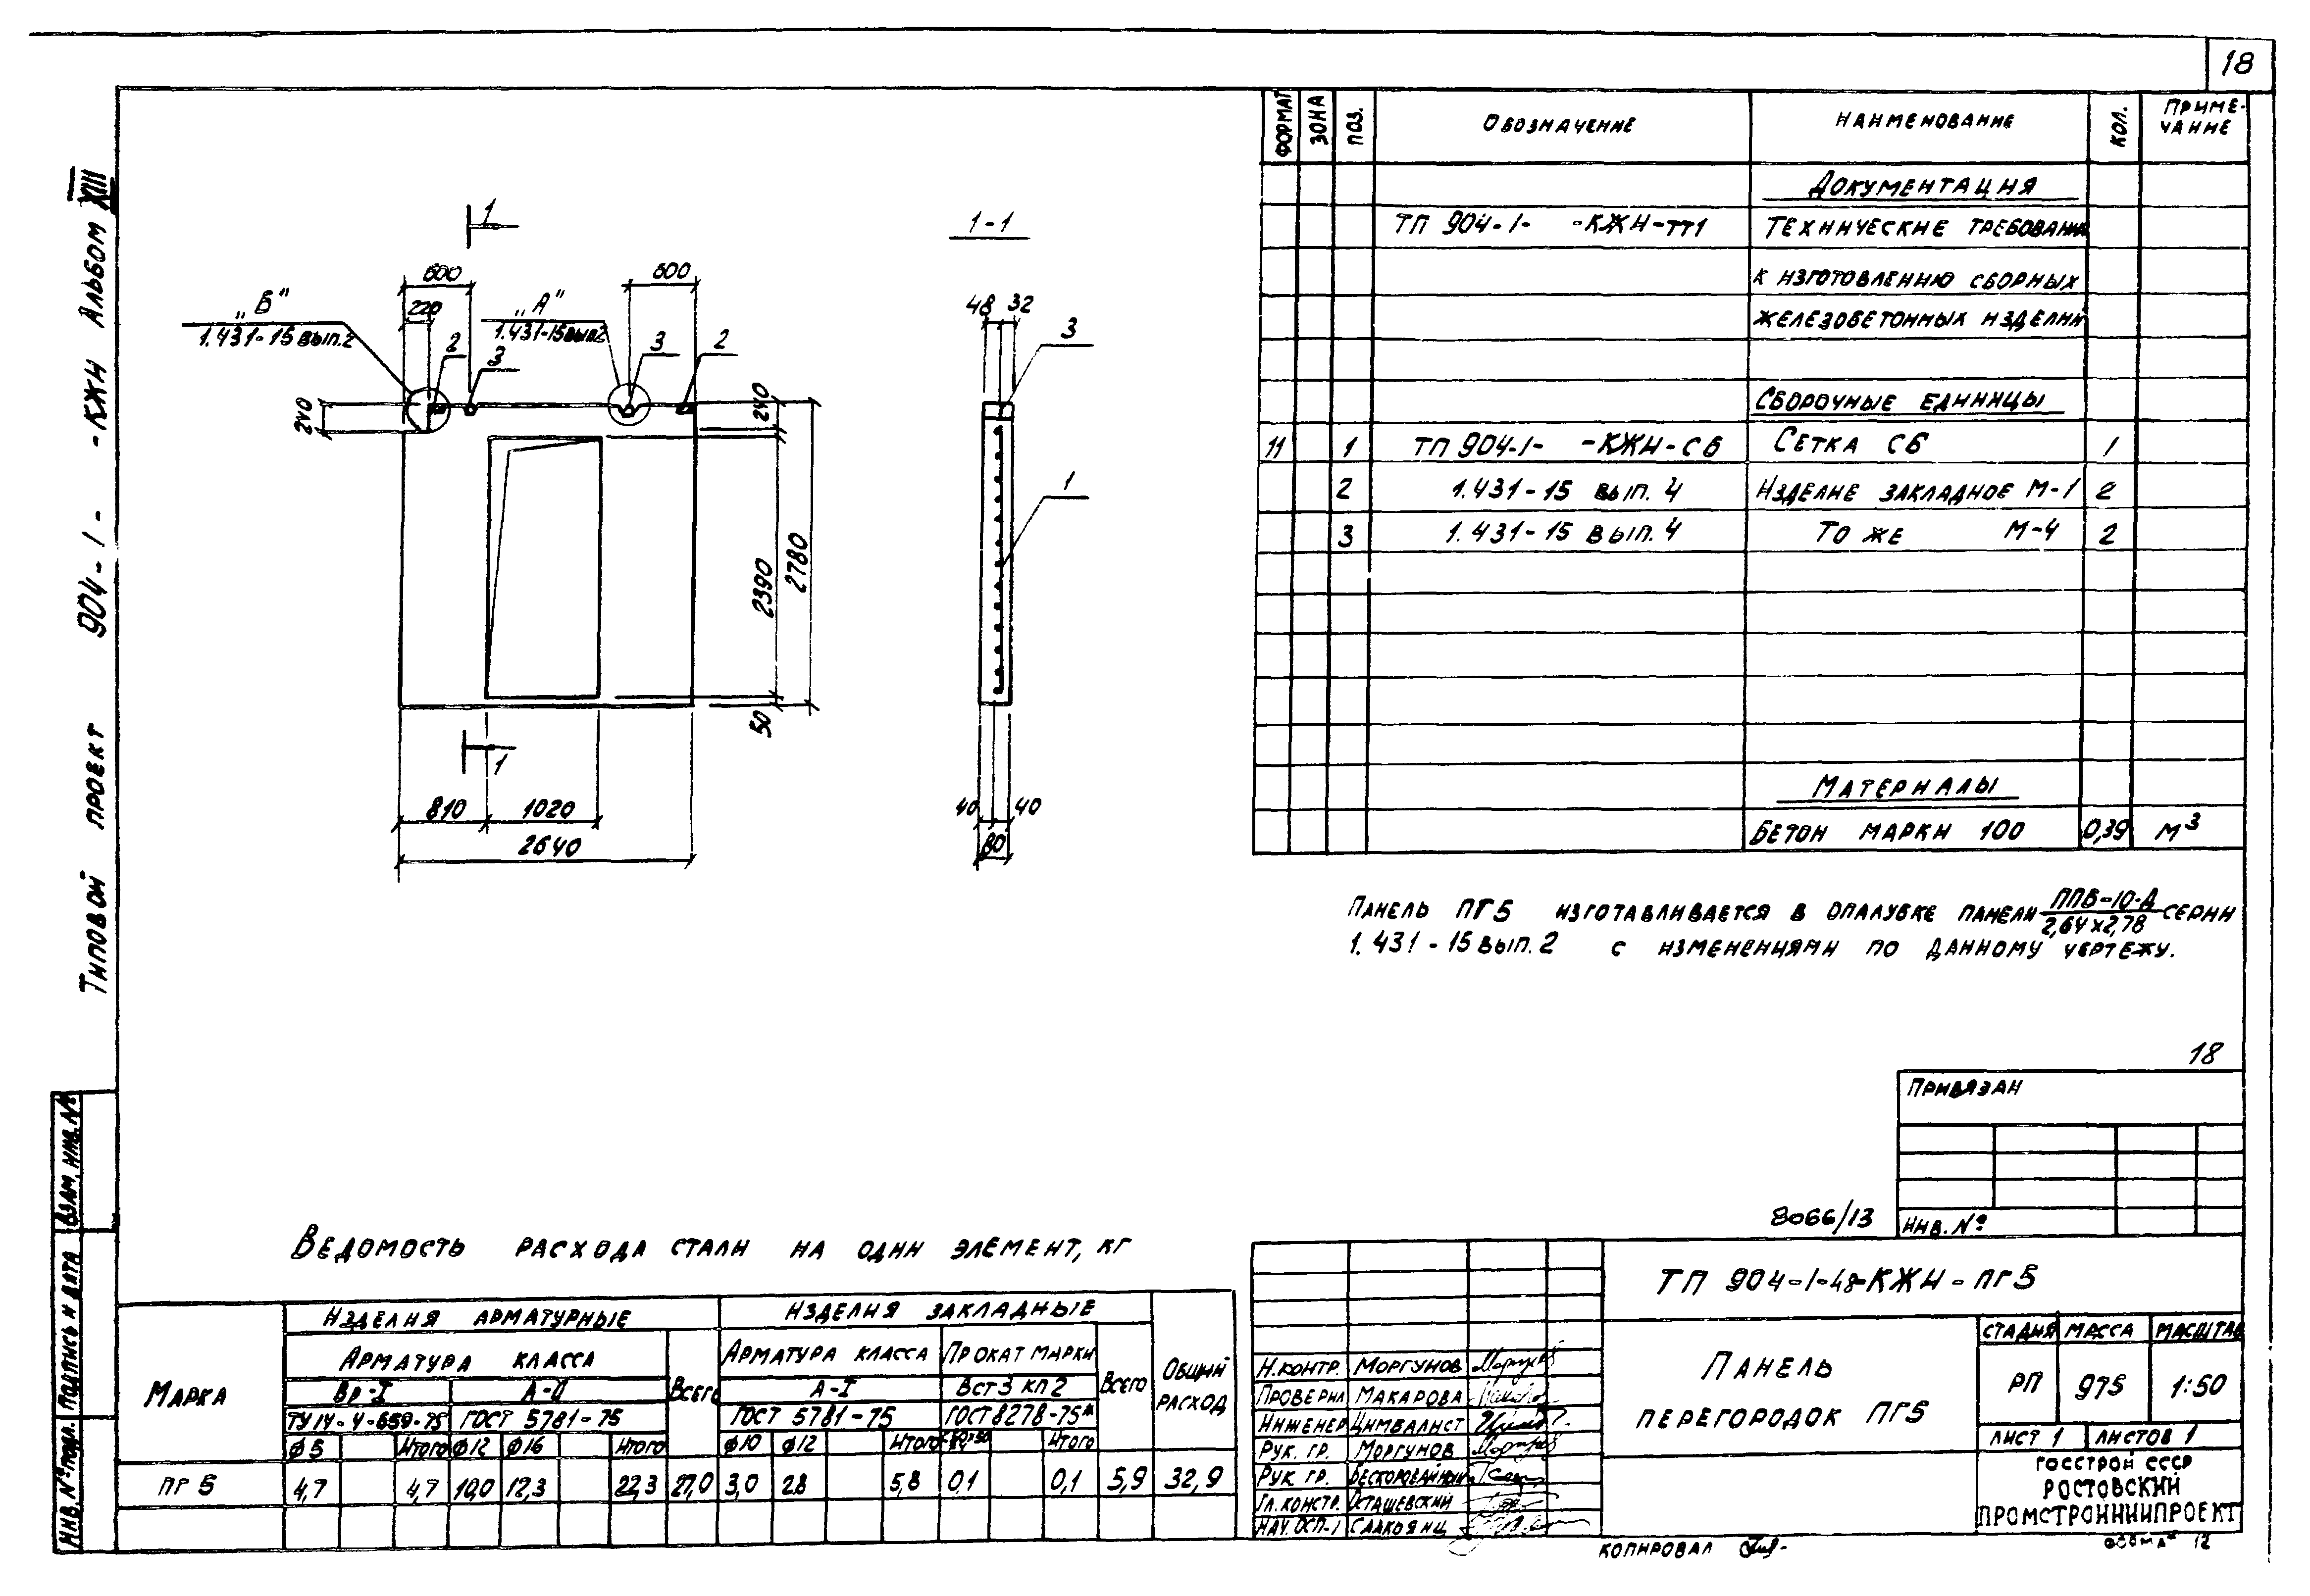 18
Типовой проект 904-1- -КЖИ Альбом XIII
1
1
1-1
600
600
220
„Б"
1.431-15 вып.2
„А"
1.431-15 вып.2
2
3
3
2
240
240
2390
2780
50
810
1020
2640
48
32
3
1
40
40
80
Формат
Зона
Поз.
Обозначение
Наименование
Кол.
Приме-
чание
Документация
ТП 904-1- -КЖИ-ТТ1 Технические требования
к изготовлению сборных
железобетонных изделий
Сборочные единицы
11 1 ТП 904-1- -КЖИ-С6 Сетка С6 1
2 1.431-15 вып. 4 Изделие закладное М-1 2
3 1.431-15 вып. 4 То же М-4 2
Материалы
Бетон марки 100 0,39 м3
Панель ПГ5 изготавливается в опалубке панели ППБ-10-Д серии
2,64х2,78
1.431-15 вып. 2 с изменениями по данному чертежу.
18
Привязан
Инв. №
8066/13
Взам. инв. №
Подпись и дата
Инв. № подл.
Ведомость расхода стали на один элемент, кг
Марка
Изделия арматурные
Изделия закладные
Общий
расход
Арматура класса
Всего
Арматура класса
Прокат марки
Всего
Вр-I
А-II
А-I
Вст3 кп2
ТУ 14-4-659-75
ГОСТ 5781-75
ГОСТ 5781-75
ГОСТ 8278-75*
φ5 Итого φ12 φ16 Итого φ10 φ12 Итого Итого
ПГ5 4,7 4,7 10,0 12,3 22,3 27,0 3,0 2,8 5,8 0,1 0,1 5,9 32,9
ТП 904-1-48-КЖИ-ПГ5
Панель
перегородок ПГ5
Стадия Масса Масштаб
РП 975 1:50
Лист 1 Листов 1
Госстрой СССР
Ростовский
Промстройниипроект
Н.контр. Моргунов
Проверил Макарова
Инженер Цимбалист
Рук. гр. Моргунов
Рук. гр. Бескоровайный
Гл. констр. Осташевский
Нач. ОСП-1 Саакоянц
Копировал
Формат 12